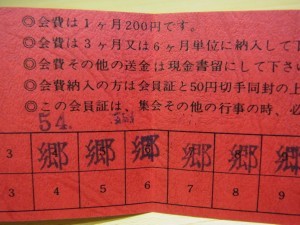 ◎会費は１ヶ月200円です。
◎会費は３ヶ月又は６ヶ月単位に納入して下
◎会費その他の送金は現金書留にして下さい
◎会費納入の方は会員証と50円切手同封の上
◎この会員証は、集会その他の行事の時、必
54.
3 郷 郷 郷 郷 郷 郷
3 4 5 6 7 8 9